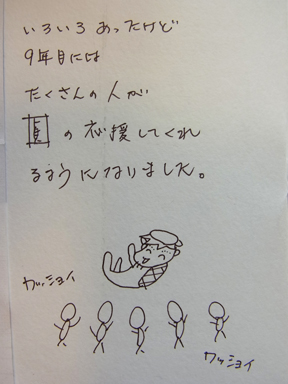 いろいろあったけど
9年目には
たくさんの人が
の応援してくれ
るようになりました。
ワッショイ
ワッショイ